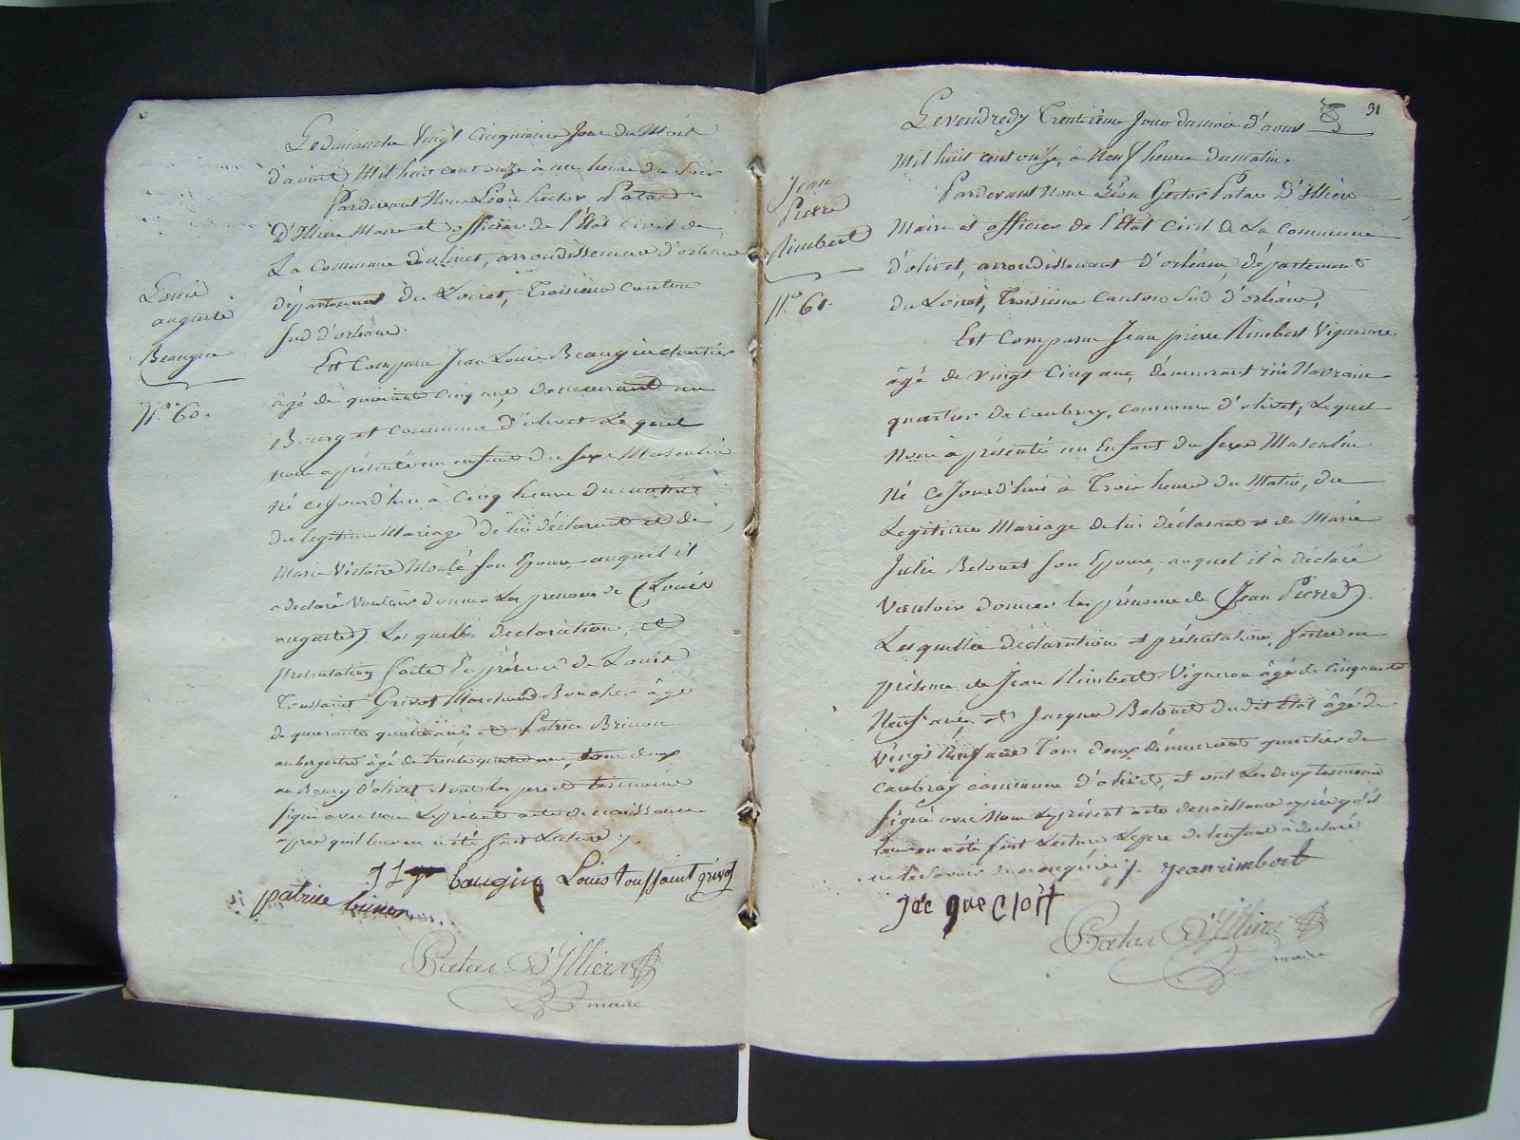 Louis
auguste
Beaugin
N.o 60.
Le dimanche Vingt Cinquieme Jour du Mois
d'aoust Mil huit cent onze à une heure du Soir
Pardevant Nous Léon hector Patas
D'Illiers Maire et officier de l'État Civil de
La Commune d'olivet, arrondissement d'orleans
département du Loiret, Troisieme Canton
Sud d'orléans.
Est Comparu Jean Louis Beaugin
âgé de quarante Cinq ans, demeurant au
Bourg et Commune d'olivet Lequel
nous a présenté un enfant du Sexe Masculin
Né cejourd'hui à Cinq heures du matin
du legitime Mariage de lui déclarant et de
Marie Victoire Moulé son Epouse, auquel il
a declaré Vouloir donner les prenoms de (Louis
auguste) Les quelles declaration et
présentation faite En présence de Louis
Toussaint Grivot Marchand Boucher âgé
de quarante ans et Patrice Brinon
aubergiste âgé de trente quatre ans, tous deux
au Bourg d'olivet et ont les pere et temoins
signé avec nous Le présent acte de naissance
après qu'il leur en a été fait Lecture ./.
J L baugin Louis toussaint grivot
patrice brinon
Patas D'Illiers
maire
31
Jean
Pierre
Rimbert
N.o 61.
Le vendredy Trentieme Jour du mois d'aoust
Mil huit cent onze, à Neuf heures du matin.
Pardevant Nous Léon Hector Patas D'Illiers
Maire et officier de l'État Civil de La Commune
d'olivet, arrondissement d'orléans, département
du Loiret, Troisieme Canton Sud d'orléans,
Est Comparu Jean pierre Rimbert Vigneron
âgé de vingt Cinq ans, demeurant
quartier de Caubray, Commune d'olivet, Lequel
Nous a présenté un Enfant du Sexe Masculin
Né Cejourd'hui à Trois heures du Matin, du
Legitime Mariage de lui déclarant et de Marie
Julie Belouet son Epouse, auquel il a déclaré
Vouloir donner les prénoms de (Jean Pierre).
Lesquelles déclaration et présentation, faites en
présence de Jean Rimbert Vigneron âgé de Cinquante
Neuf ans, et Jacques Belouet dudit Etat âgé de
vingt Neuf ans Tous deux demeurant quartier de
Caubray commune d'olivet, et ont Les deux temoins
signé avec Nous Le présent acte de naissance après qu'il
leur en a été fait Lecture Le pere de lenfant à déclaré
ne le Savoir de ce enquis ./. jean rimbert
jacque clott
Patas D'Illiers
maire